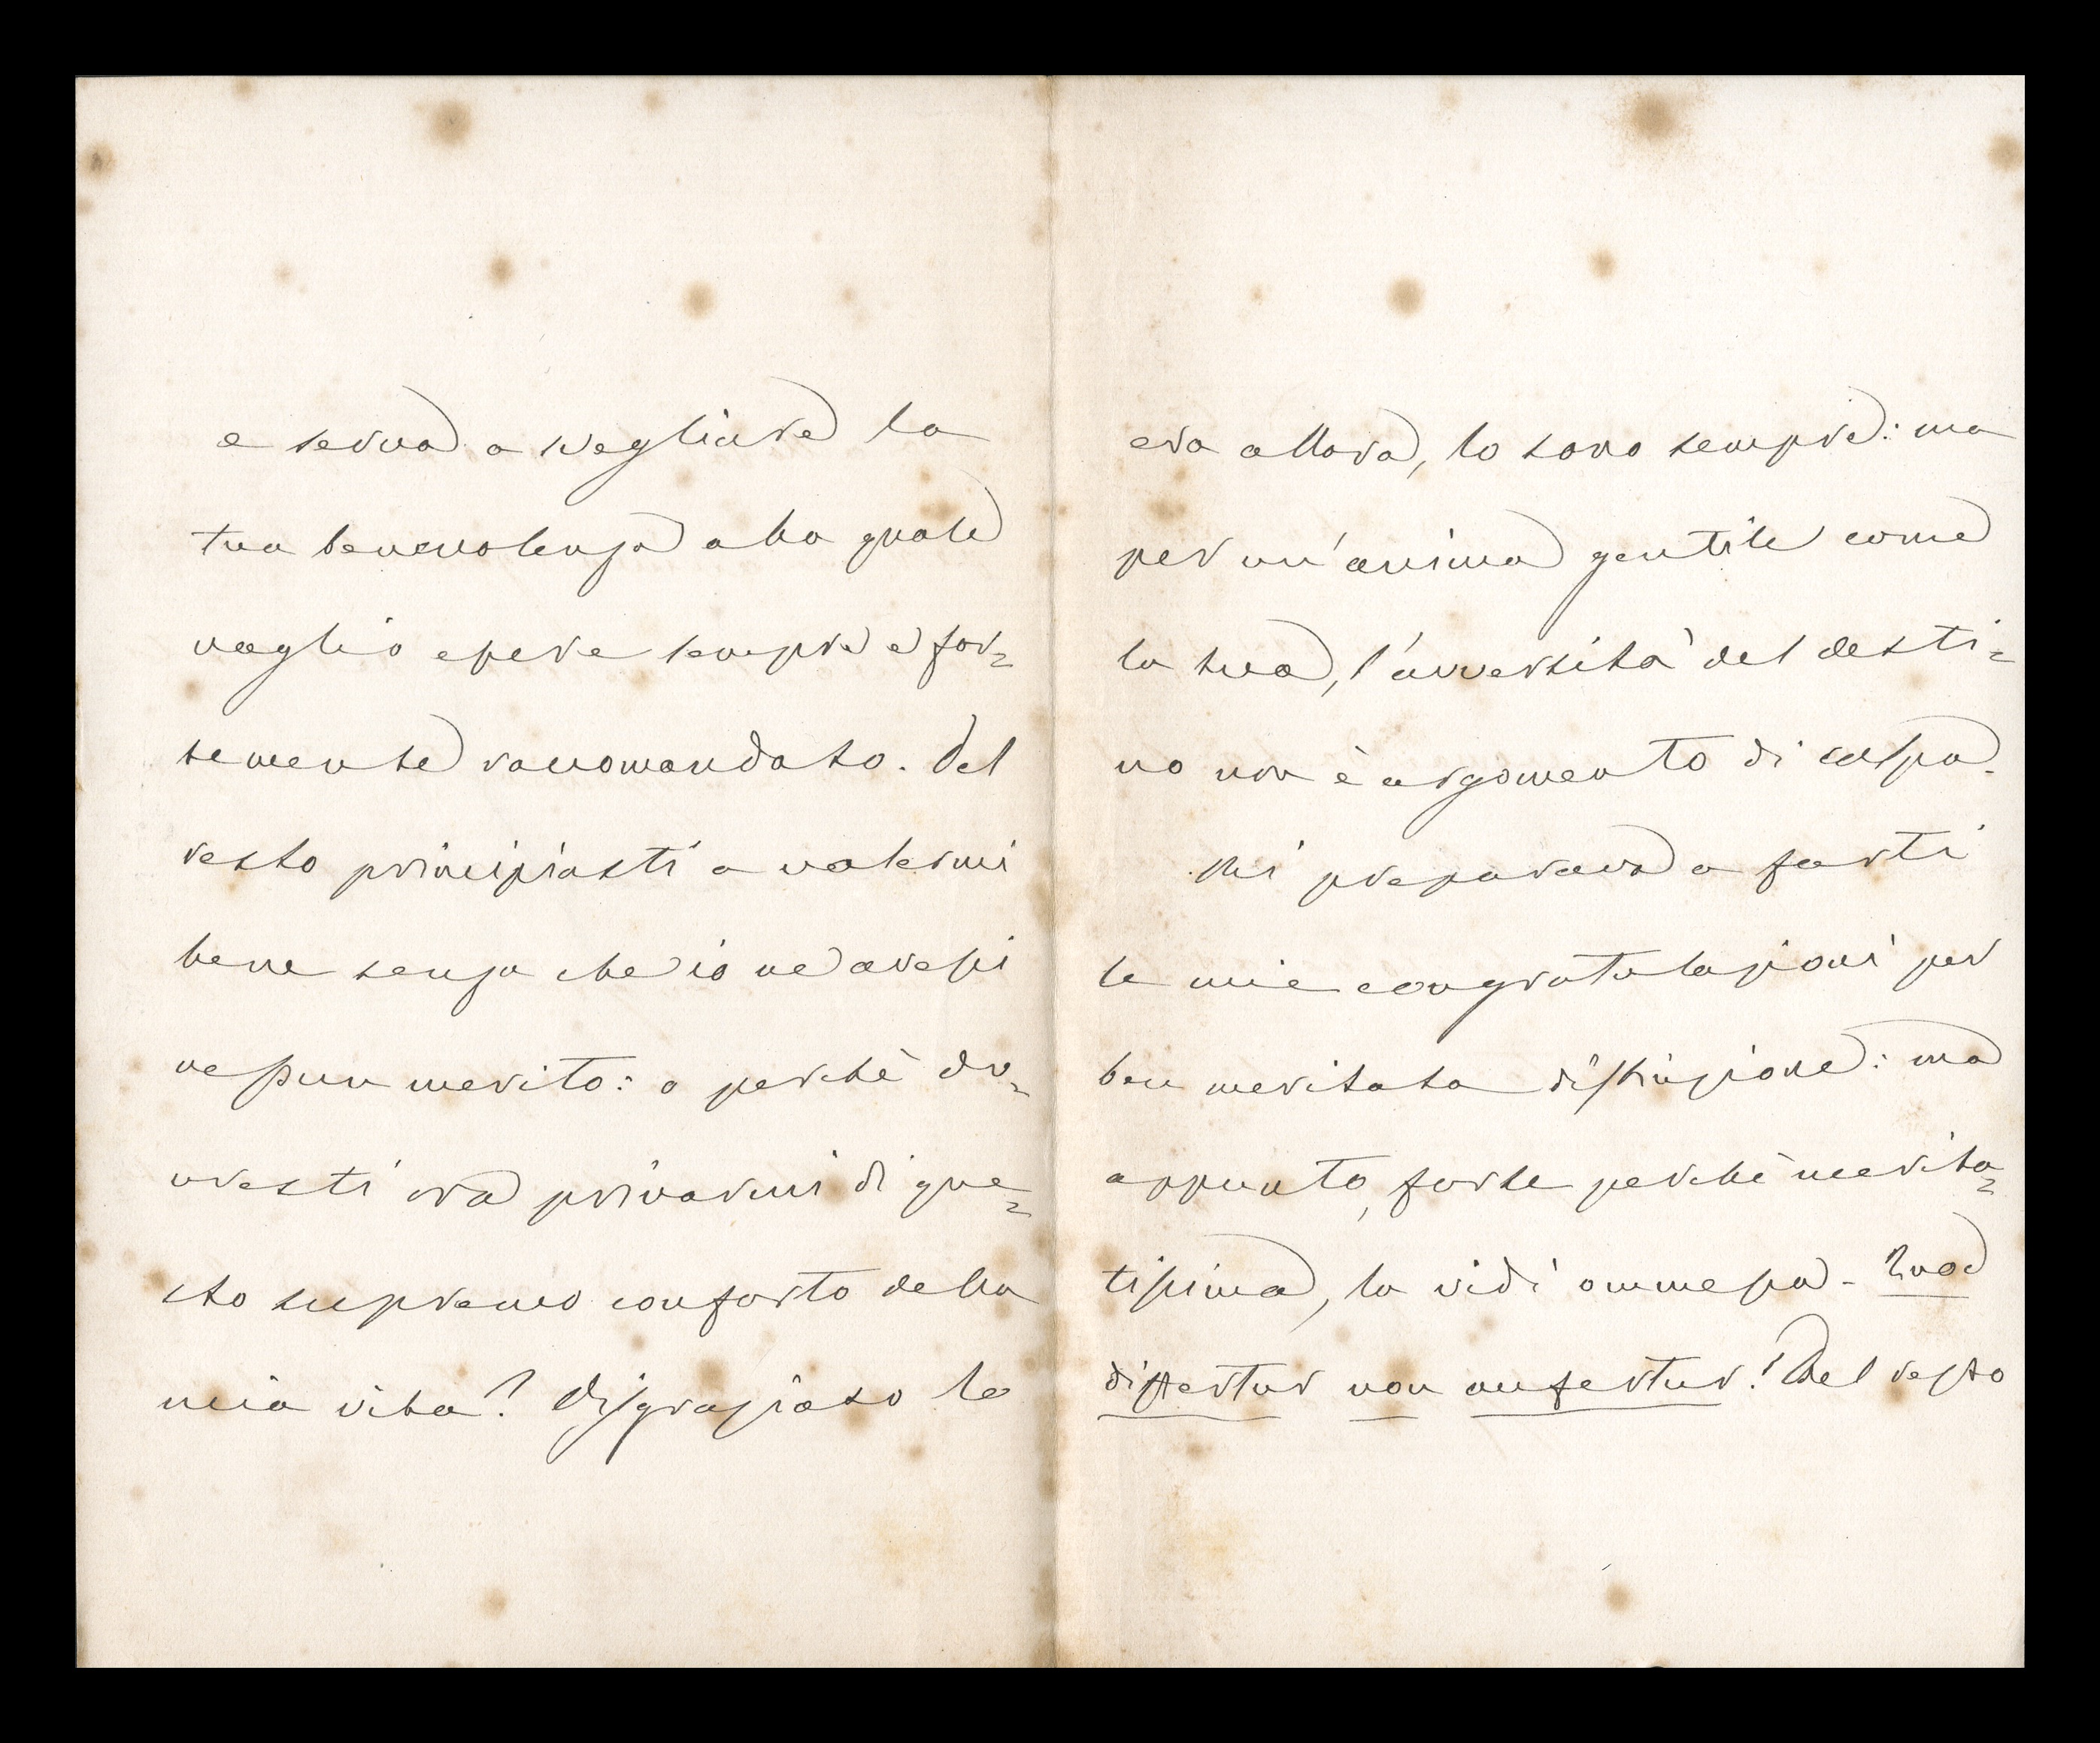 e serva a svegliare la
tua benevolenza alla quale
voglio essere sempre e for=
temente raccomandato. Del
resto principiasti a volermi
bene senza che io ne avessi
nessun merito: o perchè do=
vresti ora privarmi di que=
sto supremo conforto della
mia vita? Disgraziato lo
era allora, lo sono sempre: ma
per un'anima gentile come
la tua, l'avversità del desti=
no non è argomento di colpa.
Mi preparava a farti
le mie congratulazioni per
ben meritata distinzione: ma
appunto, forse perchè merita=
tissima, la vidi ommessa - Quod
differtur non aufertur! Del resto